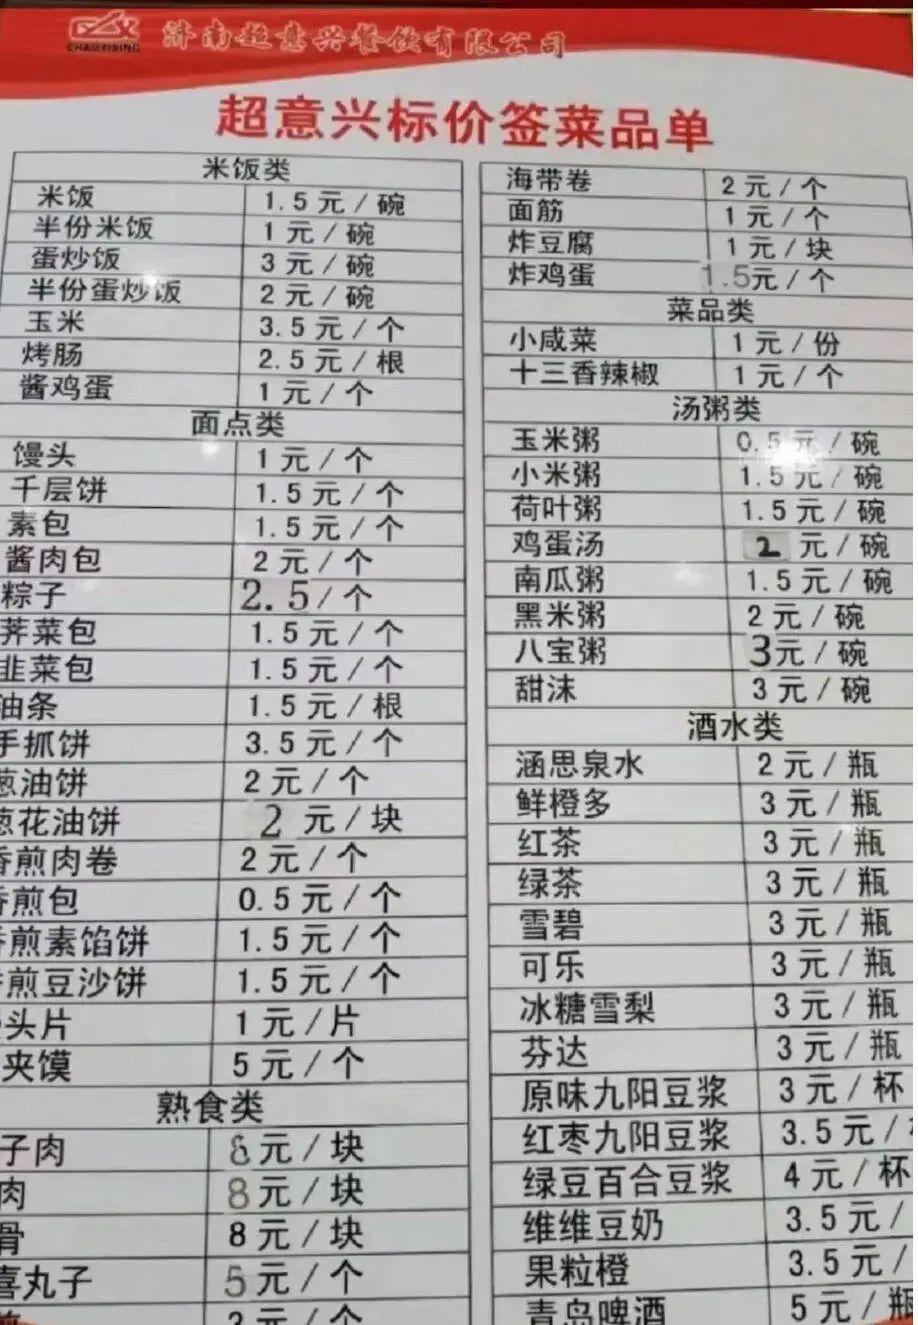 CHAOYIXING
济南超意兴餐饮有限公司
超意兴标价签菜品单
米饭类
米饭 1.5元/碗
半份米饭 1元/碗
蛋炒饭 3元/碗
半份蛋炒饭 2元/碗
玉米 3.5元/个
烤肠 2.5元/根
酱鸡蛋 1元/个
面点类
馒头 1元/个
千层饼 1.5元/个
素包 1.5元/个
酱肉包 2元/个
粽子 2.5/个
荠菜包 1.5元/个
韭菜包 1.5元/个
油条 1.5元/根
手抓饼 3.5元/个
葱油饼 2元/个
葱花油饼 2元/块
香煎肉卷 2元/个
香煎包 0.5元/个
香煎素馅饼 1.5元/个
煎豆沙饼 1.5元/个
头片 1元/片
夹馍 5元/个
熟食类
子肉 8元/块
肉 8元/块
骨 8元/块
喜丸子 5元/个
2元/个
海带卷 2元/个
面筋 1元/个
炸豆腐 1元/块
炸鸡蛋 1.5元/个
菜品类
小咸菜 1元/份
十三香辣椒 1元/个
汤粥类
玉米粥 0.5元/碗
小米粥 1.5元/碗
荷叶粥 1.5元/碗
鸡蛋汤 2元/碗
南瓜粥 1.5元/碗
黑米粥 2元/碗
八宝粥 3元/碗
甜沫 3元/碗
酒水类
涵思泉水 2元/瓶
鲜橙多 3元/瓶
红茶 3元/瓶
绿茶 3元/瓶
雪碧 3元/瓶
可乐 3元/瓶
冰糖雪梨 3元/瓶
芬达 3元/瓶
原味九阳豆浆 3元/杯
红枣九阳豆浆 3.5元/
绿豆百合豆浆 4元/杯
维维豆奶 3.5元/
果粒橙 3.5元/
青岛啤酒 5元/瓶